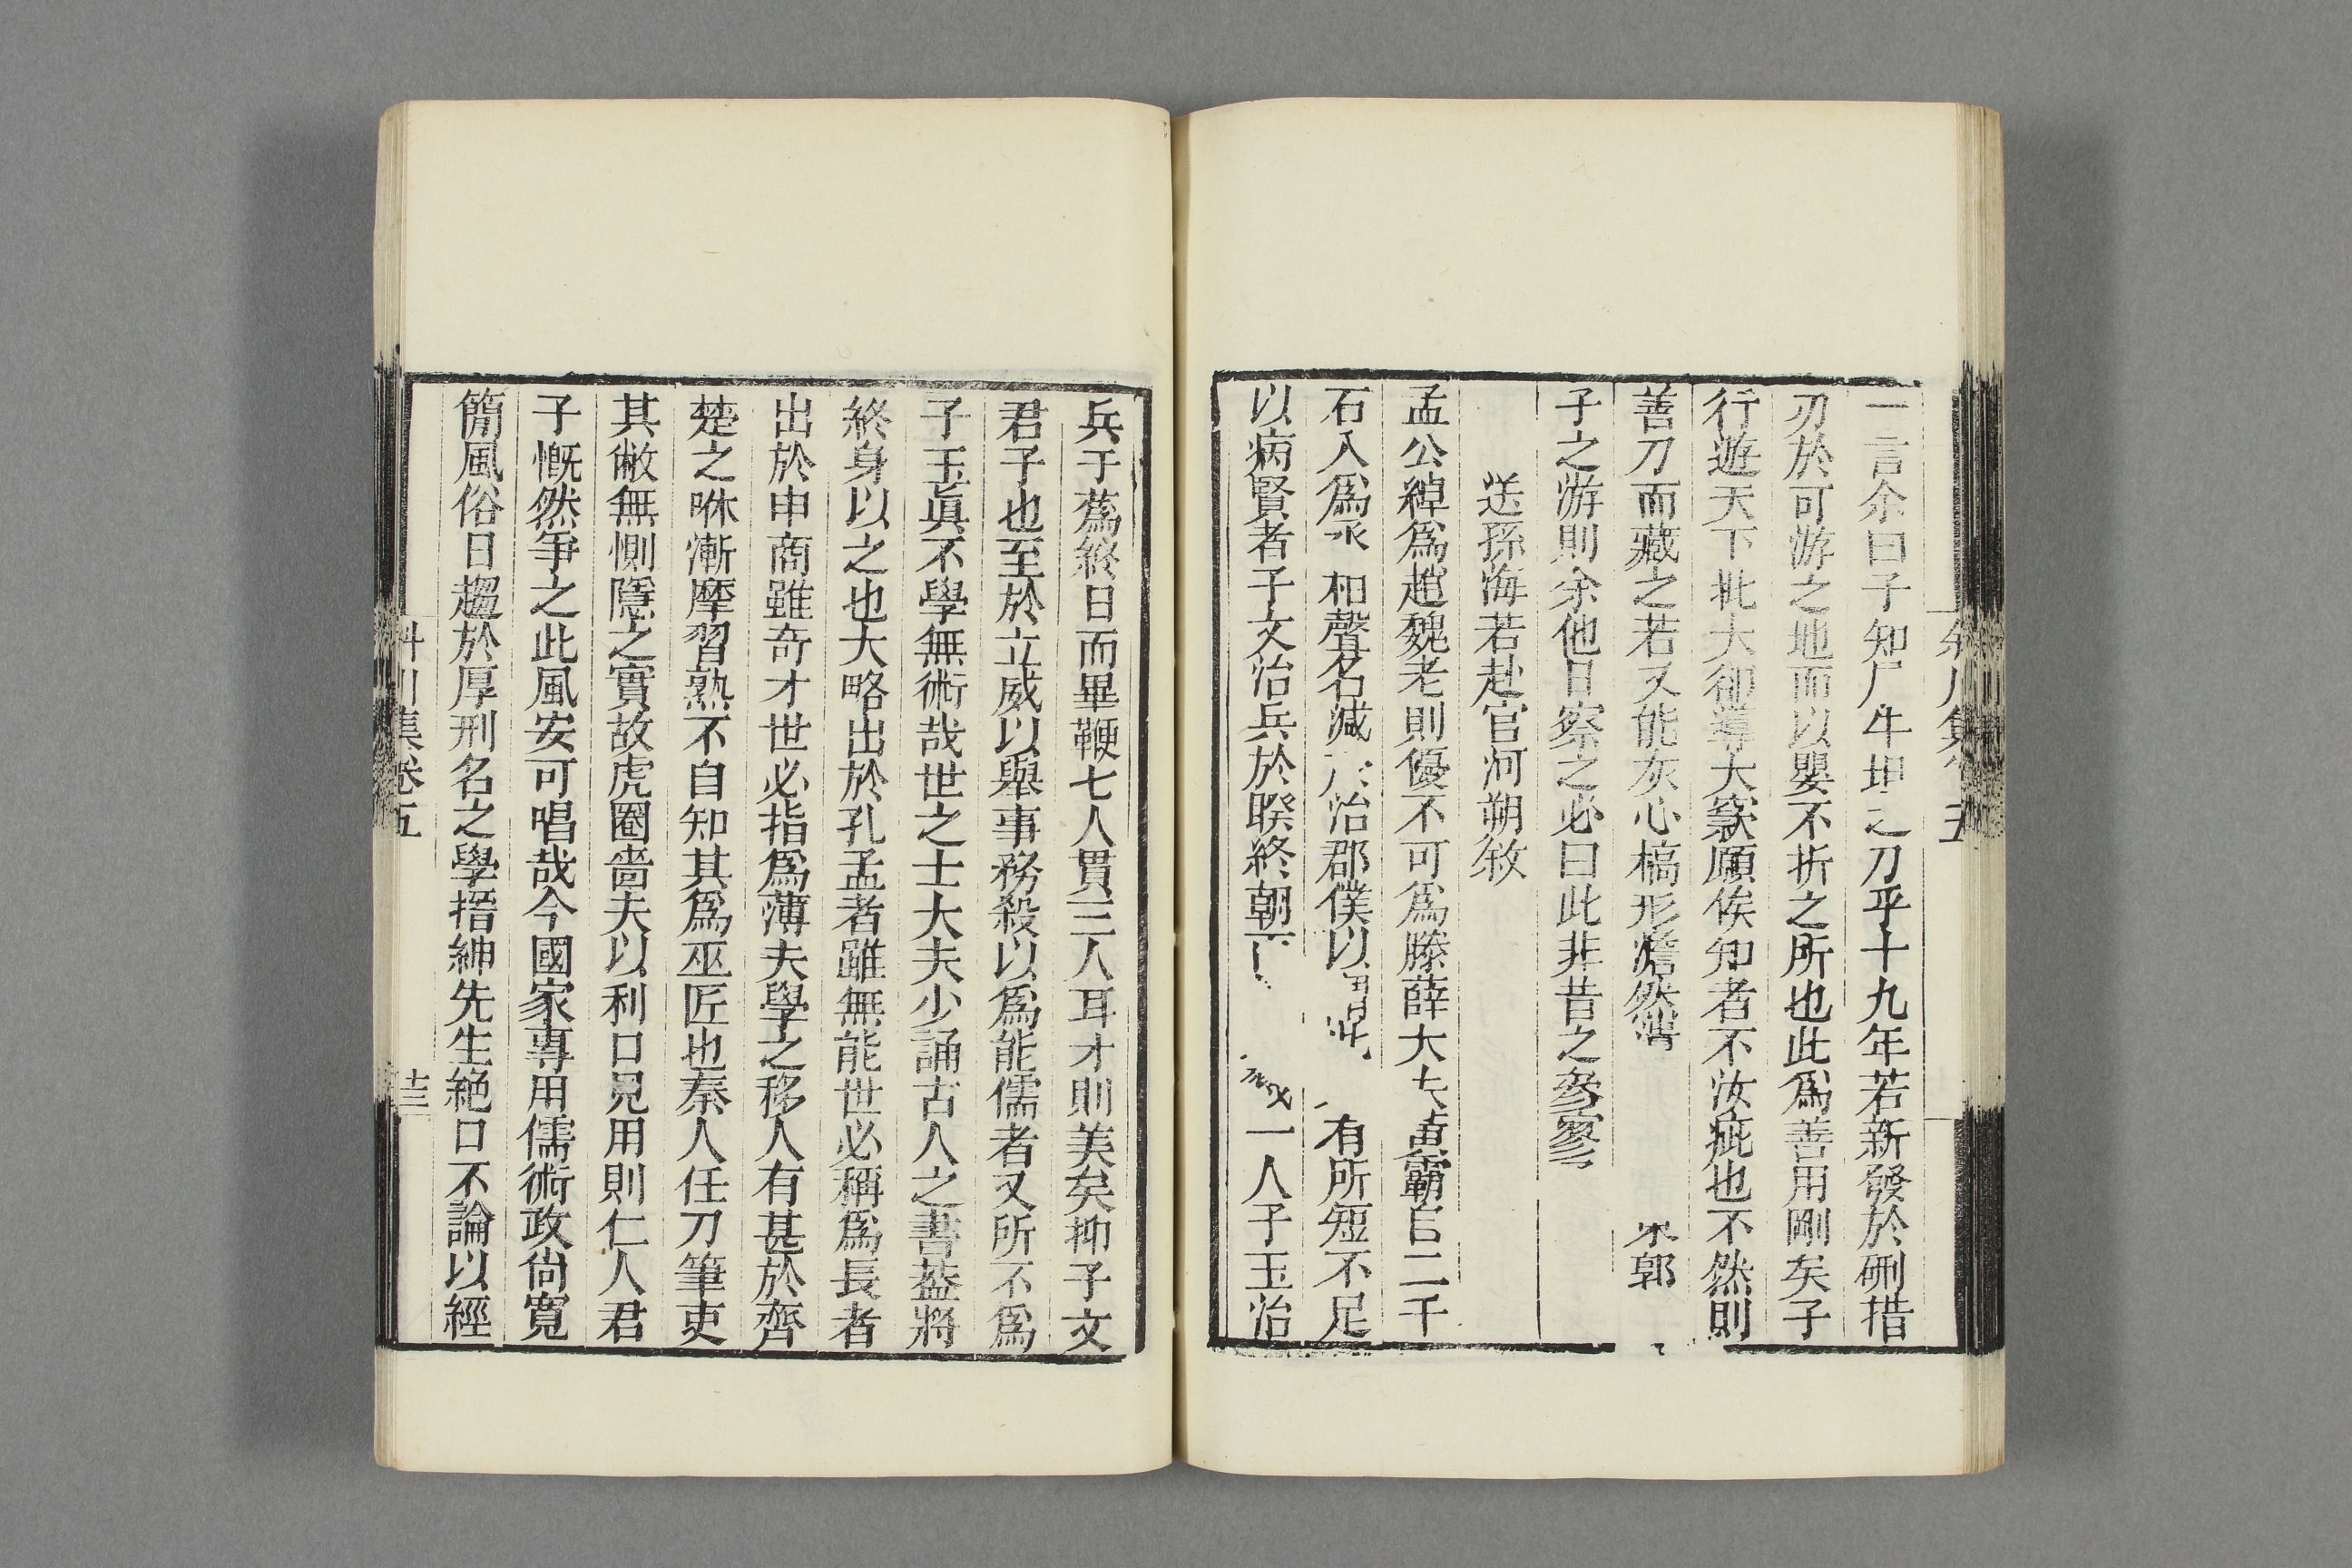 一言余曰子知尸牛坦之刀乎十九年若新發於硎措
刃於可游之地而以嬰不折之所也此爲善用剛矣子
行遊天下批大郤導大窾願俟知者不汝疵也不然則
善刀而藏之若又能灰心槁形澹然 郭
子之游則余他日察之必曰此非昔之參寥
送孫海若赴官河朔敘
孟公綽爲趙魏老則優不可爲滕薛大夫黃霸官二千
石入爲丞相聲名減於治郡僕以 有所短不足
以病賢者子文治兵於睽終朝 一人子玉治
兵于蔿終日而畢鞭七人貫三人耳才則美矣抑子文
君子也至於立威以舉事務殺以爲能儒者又所不爲
子玉眞不學無術哉世之士大夫少誦古人之書葢將
終身以之也大略出於孔孟者雖無能世必稱爲長者
出於申商雖奇才世必指爲薄夫學之移人有甚於齊
楚之咻漸摩習熟不自知其爲巫匠也秦人任刀筆吏
其敝無惻隱之實故虎圈嗇夫以利口見用則仁人君
子慨然爭之此風安可唱哉今國家專用儒術政尙寬
簡風俗日趨於厚刑名之學搢紳先生絕口不論以經
川集卷五
十三